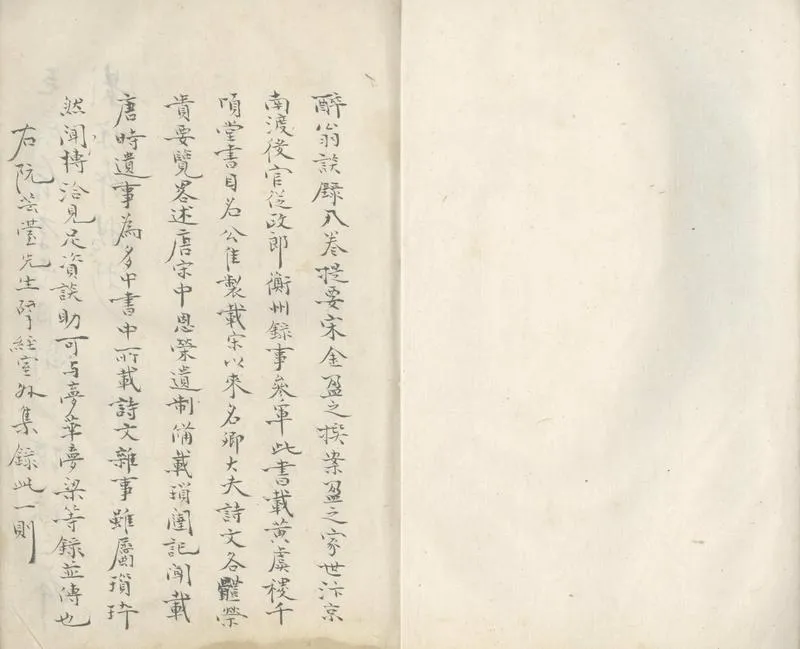 醉翁談録八卷提要宋金盈之撰案盈之家世汴京
南渡後官從政郎衡州録事參軍此書載黄虞稷千
頃堂書目名公佳製載宋以來名卿大夫詩文各體榮
貴要覽畧述唐宋中恩榮遺制備載瑣闈記聞載
唐時遺事為多中書中所載詩文雜事雖屬瑣碎
然聞博洽見足資談助可与夢華夢梁等録並傳也
右阮芸臺先生揅經室外集録此一則